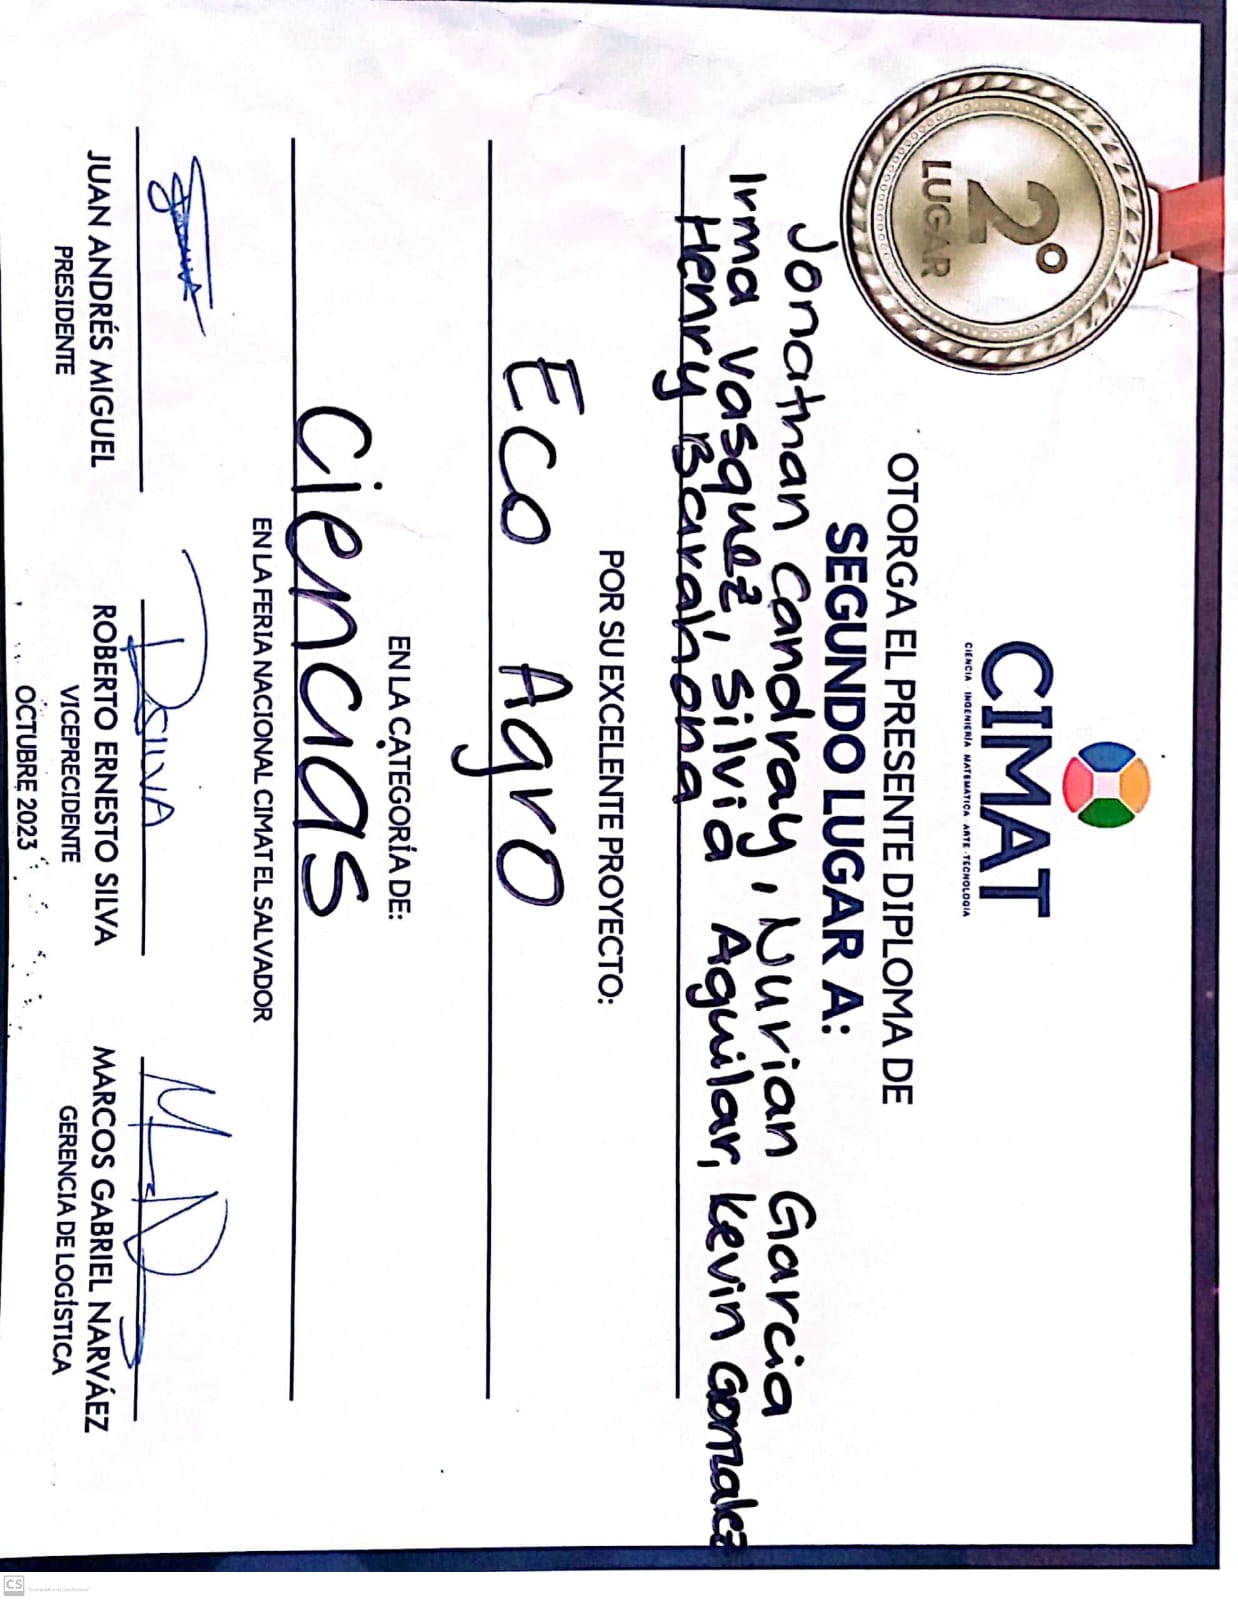 2°
LUGAR
CIMAT
CIENCIA · INGENIERÍA · MATEMATICA · ARTE · TECNOLOGIA
OTORGA EL PRESENTE DIPLOMA DE
SEGUNDO LUGAR A:
Jonathan Candray, Nurian Garcia
Irma Vasquez, Silvia Aguilar, Kevin Gonzalez
Henry Barahona
POR SU EXCELENTE PROYECTO:
Eco Agro
EN LA CATEGORÍA DE:
Ciencias
EN LA FERIA NACIONAL CIMAT EL SALVADOR
RSILVA
JUAN ANDRÉS MIGUEL
PRESIDENTE
ROBERTO ERNESTO SILVA
VICEPRECIDENTE
MARCOS GABRIEL NARVÁEZ
GERENCIA DE LOGÍSTICA
OCTUBRE 2023
CS